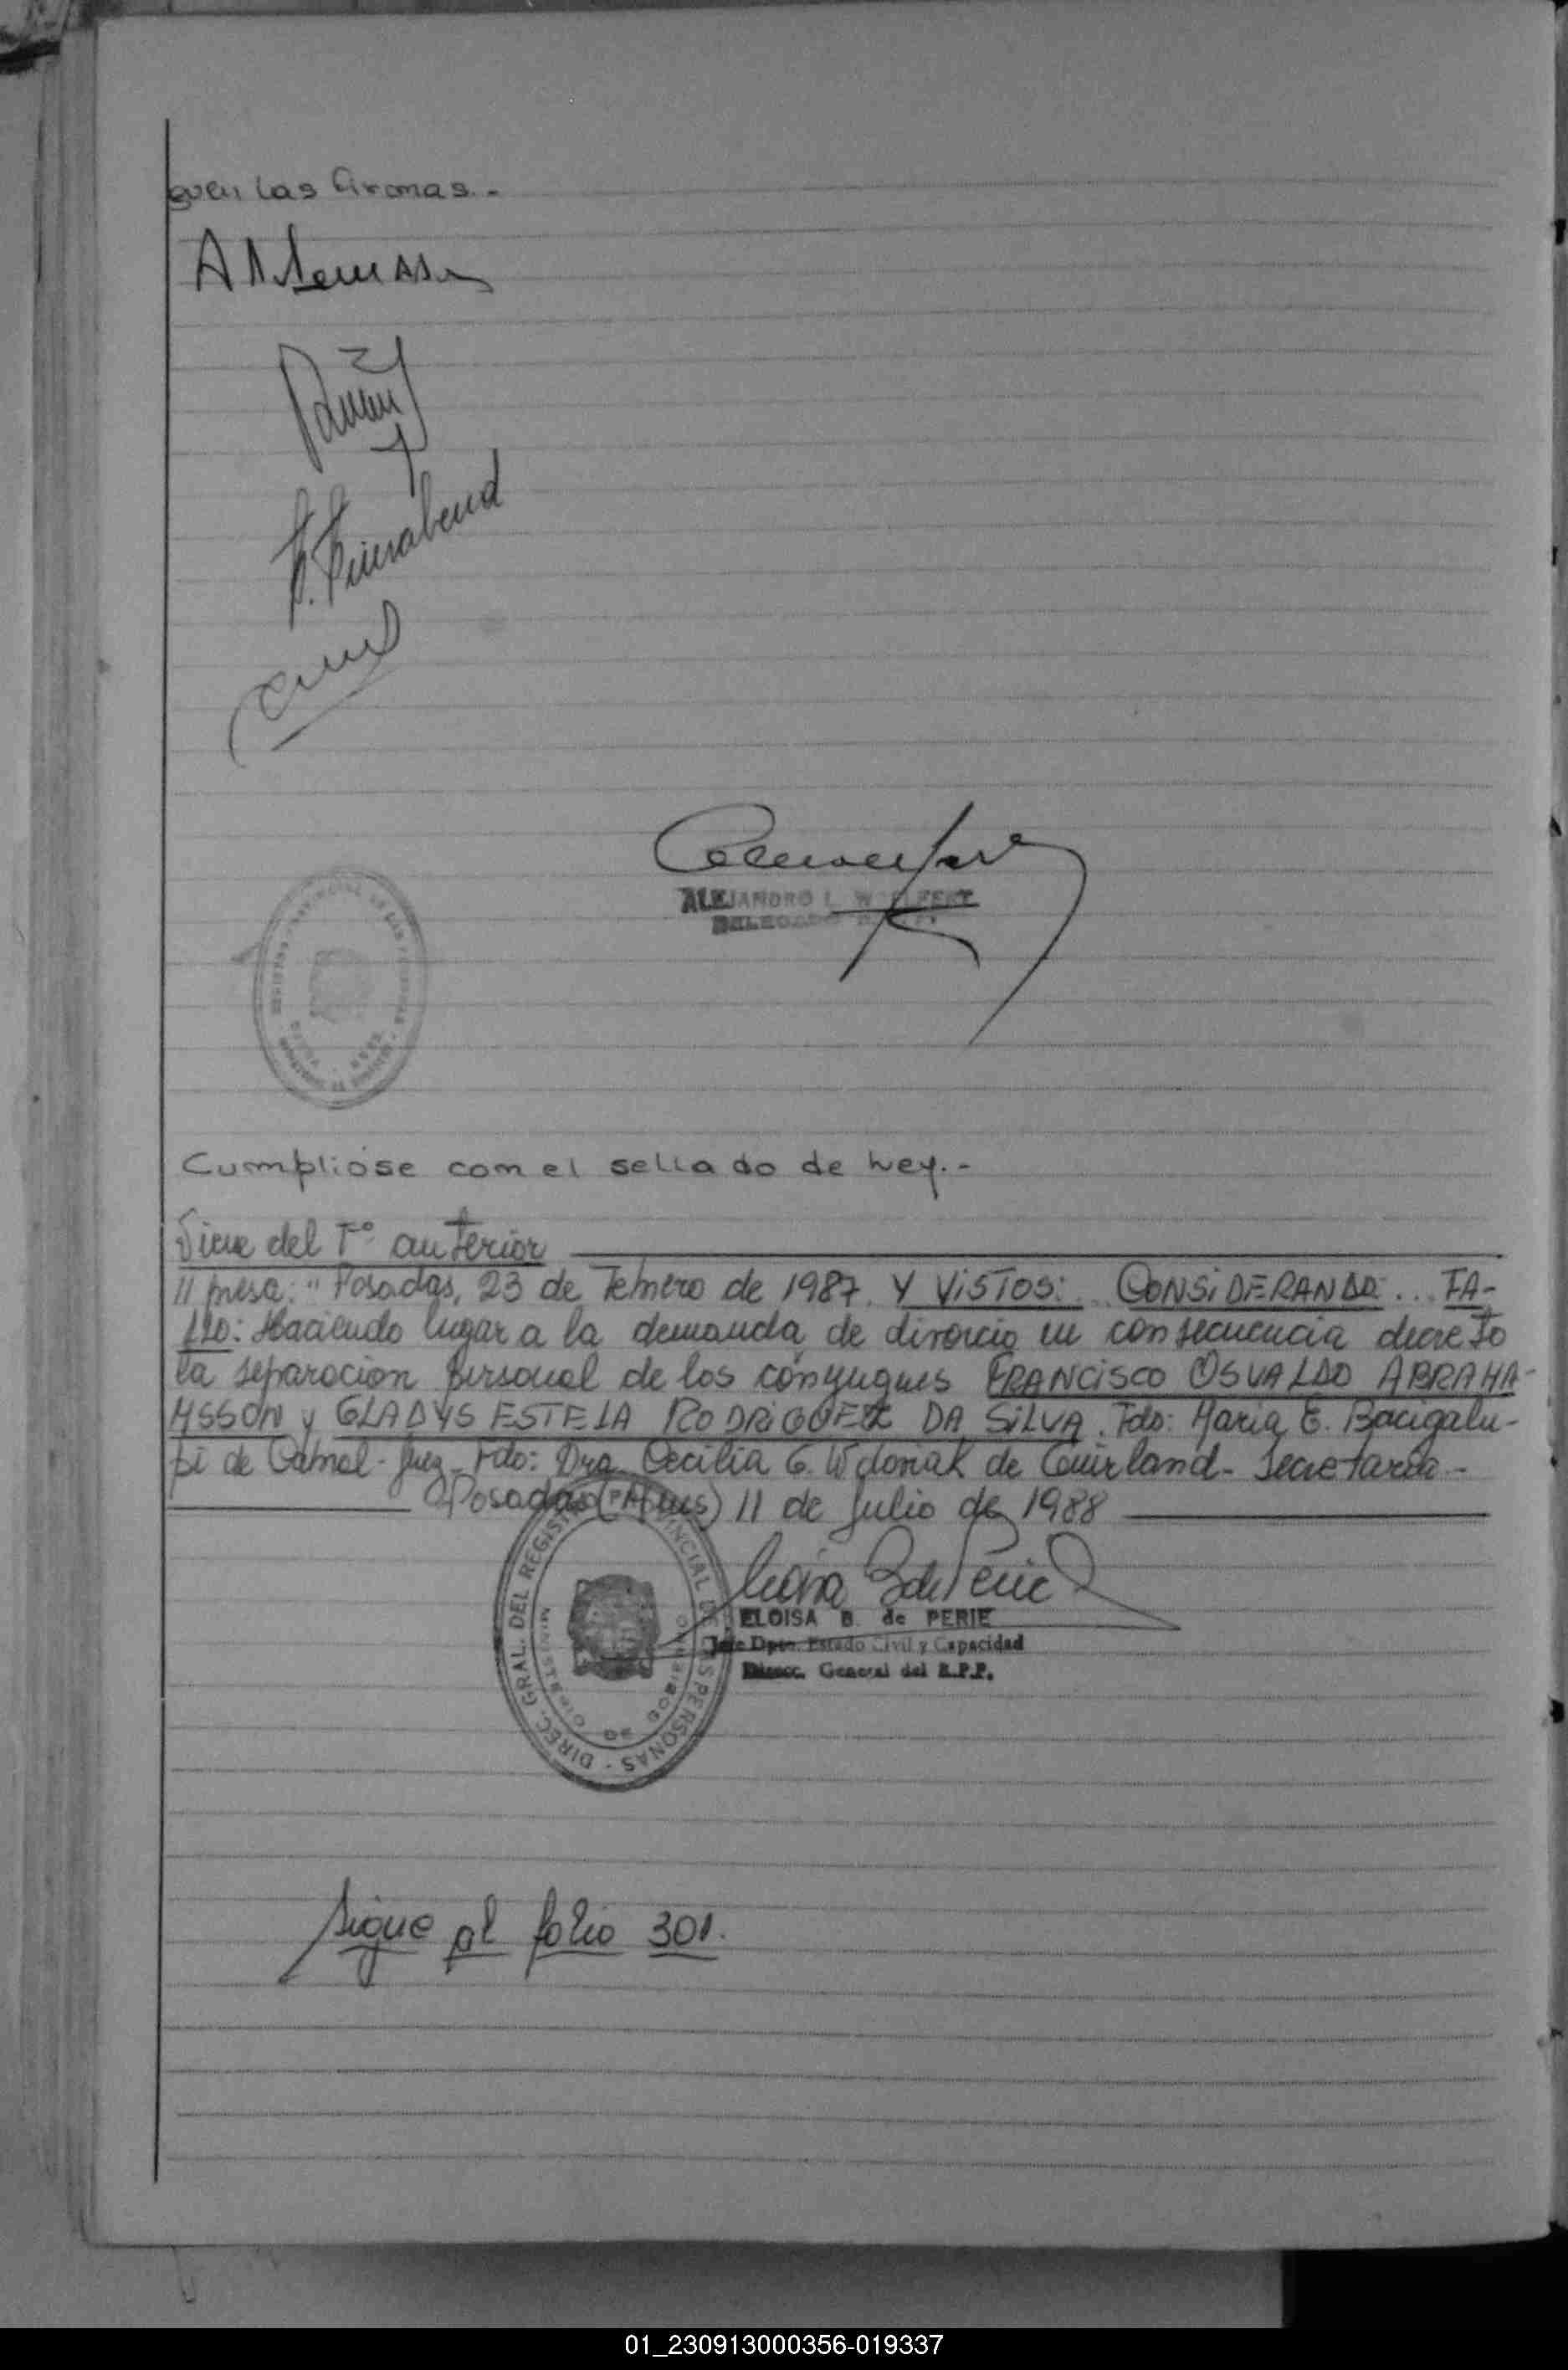 guen las firmas.-
ALEJANDRO L. W
DELEGADO
Cumplióse con el sellado de Ley.-
Viene del Fº anterior
// presa: " Posadas, 23 de Febrero de 1987. Y VISTOS: CONSIDERANDO: ... FA-
LLO: Haciendo lugar a la demanda de divorcio en consecuencia decreto
la separacion personal de los cónyugues FRANCISCO OSVALDO ABRAHA-
MSSON y GLADYS ESTELA RODRIGUEZ DA SILVA. Fdo: Maria E. Bacigalu-
pi de Cabral - Juez - Fdo: Dra. Cecilia G. Wdoniak de Guirland - Secretaria -
Posadas (Mnes) 11 de Julio de 1988
DIREC. GRAL. DEL REGISTRO PROVINCIAL DE LAS PERSONAS
MINISTERIO DE GOBIERNO
ELOISA B. de PERIE
Jefe Dpto. Estado Civil y Capacidad
Direcc. General del R.P.P.
Sigue al folio 301.
01_230913000356-019337